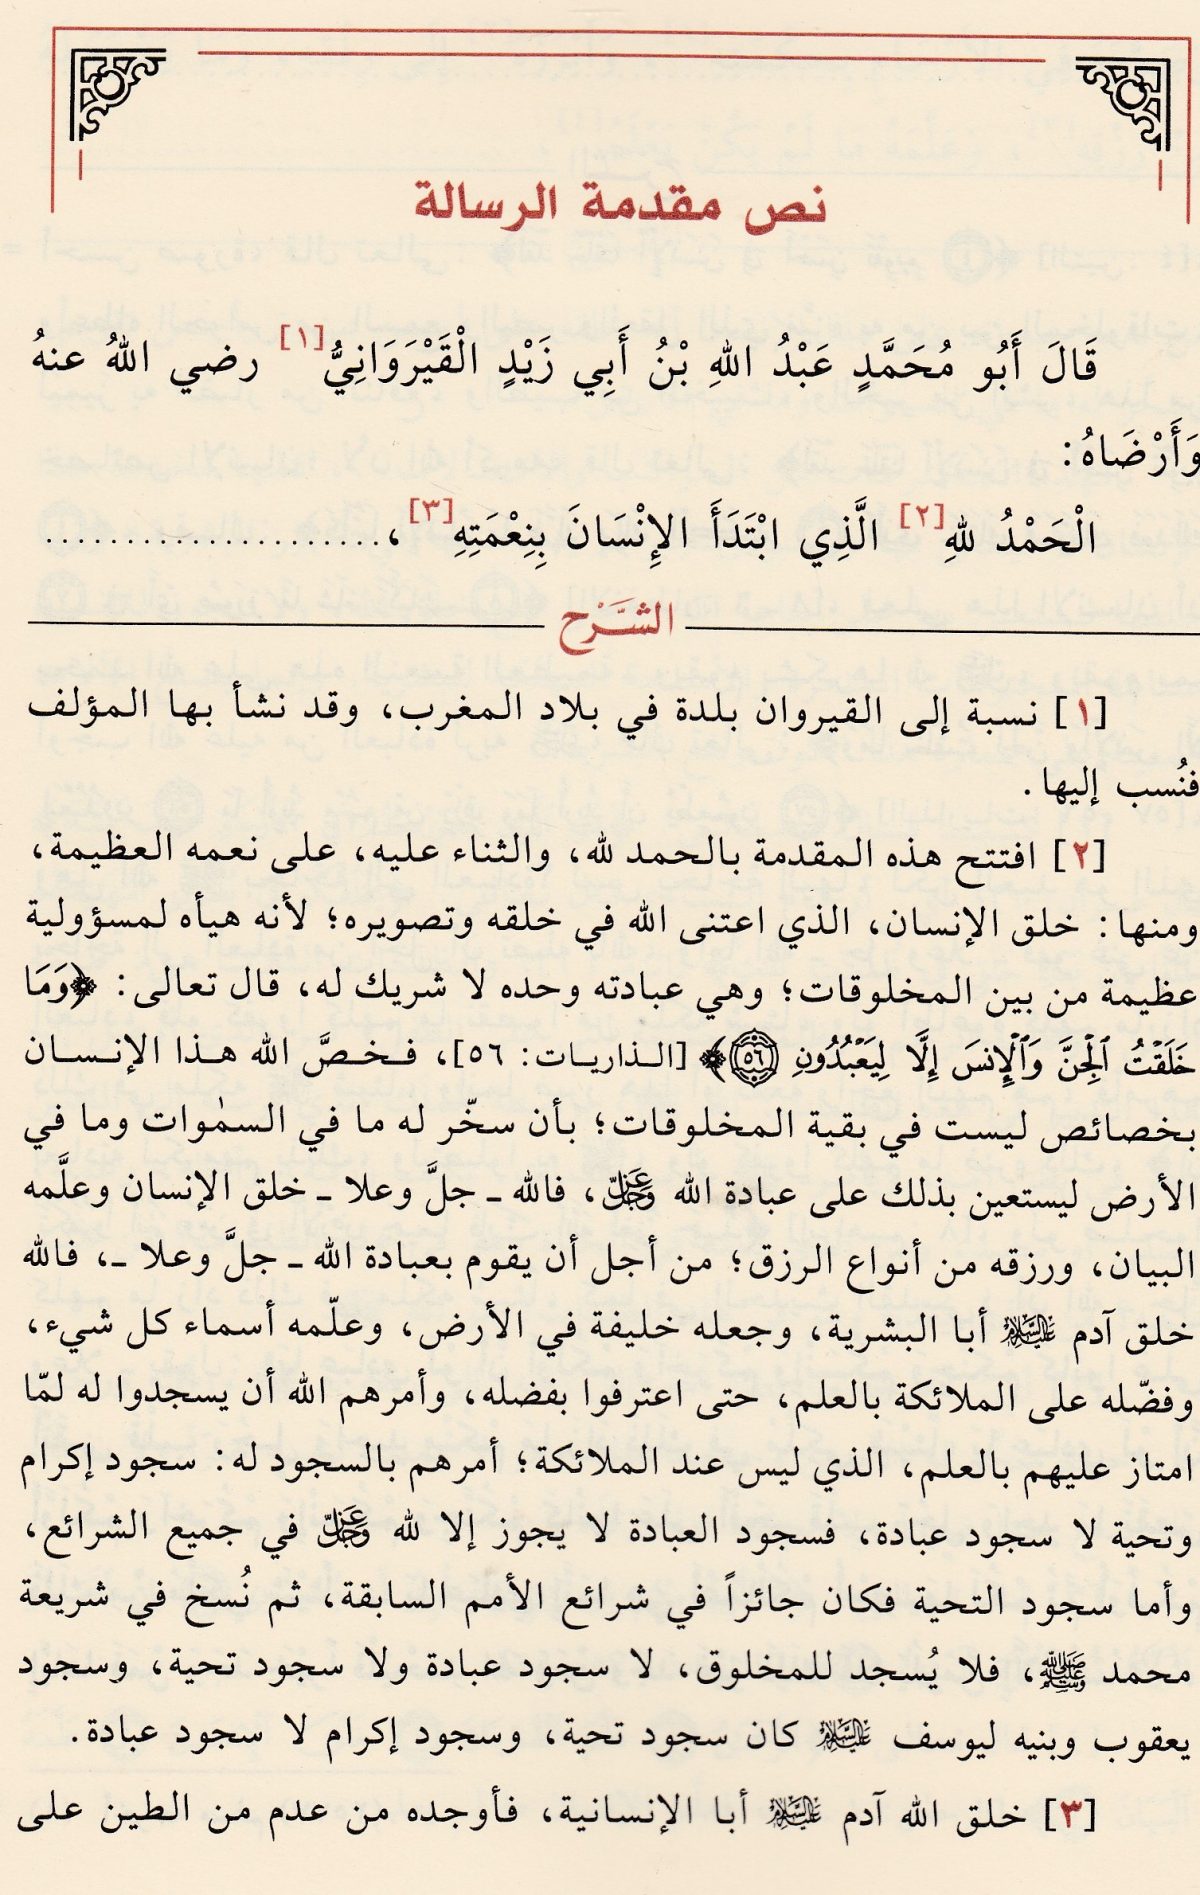 نص مقدمة الرسالة
قَالَ أَبُو مُحَمَّدٍ عَبْدُ اللهِ بْنُ أَبِي زَيْدٍ الْقَيْرَوَانِيُّ[١] رضي اللهُ عنهُ
وَأَرْضَاهُ:
الْحَمْدُ للهِ[٢] الَّذِي ابْتَدَأَ الإِنْسَانَ بِنِعْمَتِهِ[٣]، ......................
الشَّرْح
[١] نسبة إلى القيروان بلدة في بلاد المغرب، وقد نشأ بها المؤلف
فنُسب إليها.
[٢] افتتح هذه المقدمة بالحمد لله، والثناء عليه، على نعمه العظيمة،
ومنها: خلق الإنسان، الذي اعتنى الله في خلقه وتصويره؛ لأنه هيأه لمسؤولية
عظيمة من بين المخلوقات؛ وهي عبادته وحده لا شريك له، قال تعالى: ﴿وَمَا
خَلَقْتُ ٱلْجِنَّ وَٱلْإِنسَ إِلَّا لِيَعْبُدُونِ ۝٥٦﴾ [الذاريات: ٥٦]، فخصَّ الله هذا الإنسان
بخصائص ليست في بقية المخلوقات؛ بأن سخّر له ما في السمٰوات وما في
الأرض ليستعين بذلك على عبادة الله عَزَّ وَجَلَّ، فالله ـ جلَّ وعلا ـ خلق الإنسان وعلَّمه
البيان، ورزقه من أنواع الرزق؛ من أجل أن يقوم بعبادة الله ـ جلَّ وعلا ـ، فالله
خلق آدم عَلَيْهِ السَّلَامُ أبا البشرية، وجعله خليفة في الأرض، وعلّمه أسماء كل شيء،
وفضّله على الملائكة بالعلم، حتى اعترفوا بفضله، وأمرهم الله أن يسجدوا له لمّا
امتاز عليهم بالعلم، الذي ليس عند الملائكة؛ أمرهم بالسجود له: سجود إكرام
وتحية لا سجود عبادة، فسجود العبادة لا يجوز إلا لله عَزَّ وَجَلَّ في جميع الشرائع،
وأما سجود التحية فكان جائزاً في شرائع الأمم السابقة، ثم نُسخ في شريعة
محمد ﷺ، فلا يُسجد للمخلوق، لا سجود عبادة ولا سجود تحية، وسجود
يعقوب وبنيه ليوسف عَلَيْهِ السَّلَامُ كان سجود تحية، وسجود إكرام لا سجود عبادة.
[٣] خلق الله آدم عَلَيْهِ السَّلَامُ أبا الإنسانية، فأوجده من عدم من الطين على